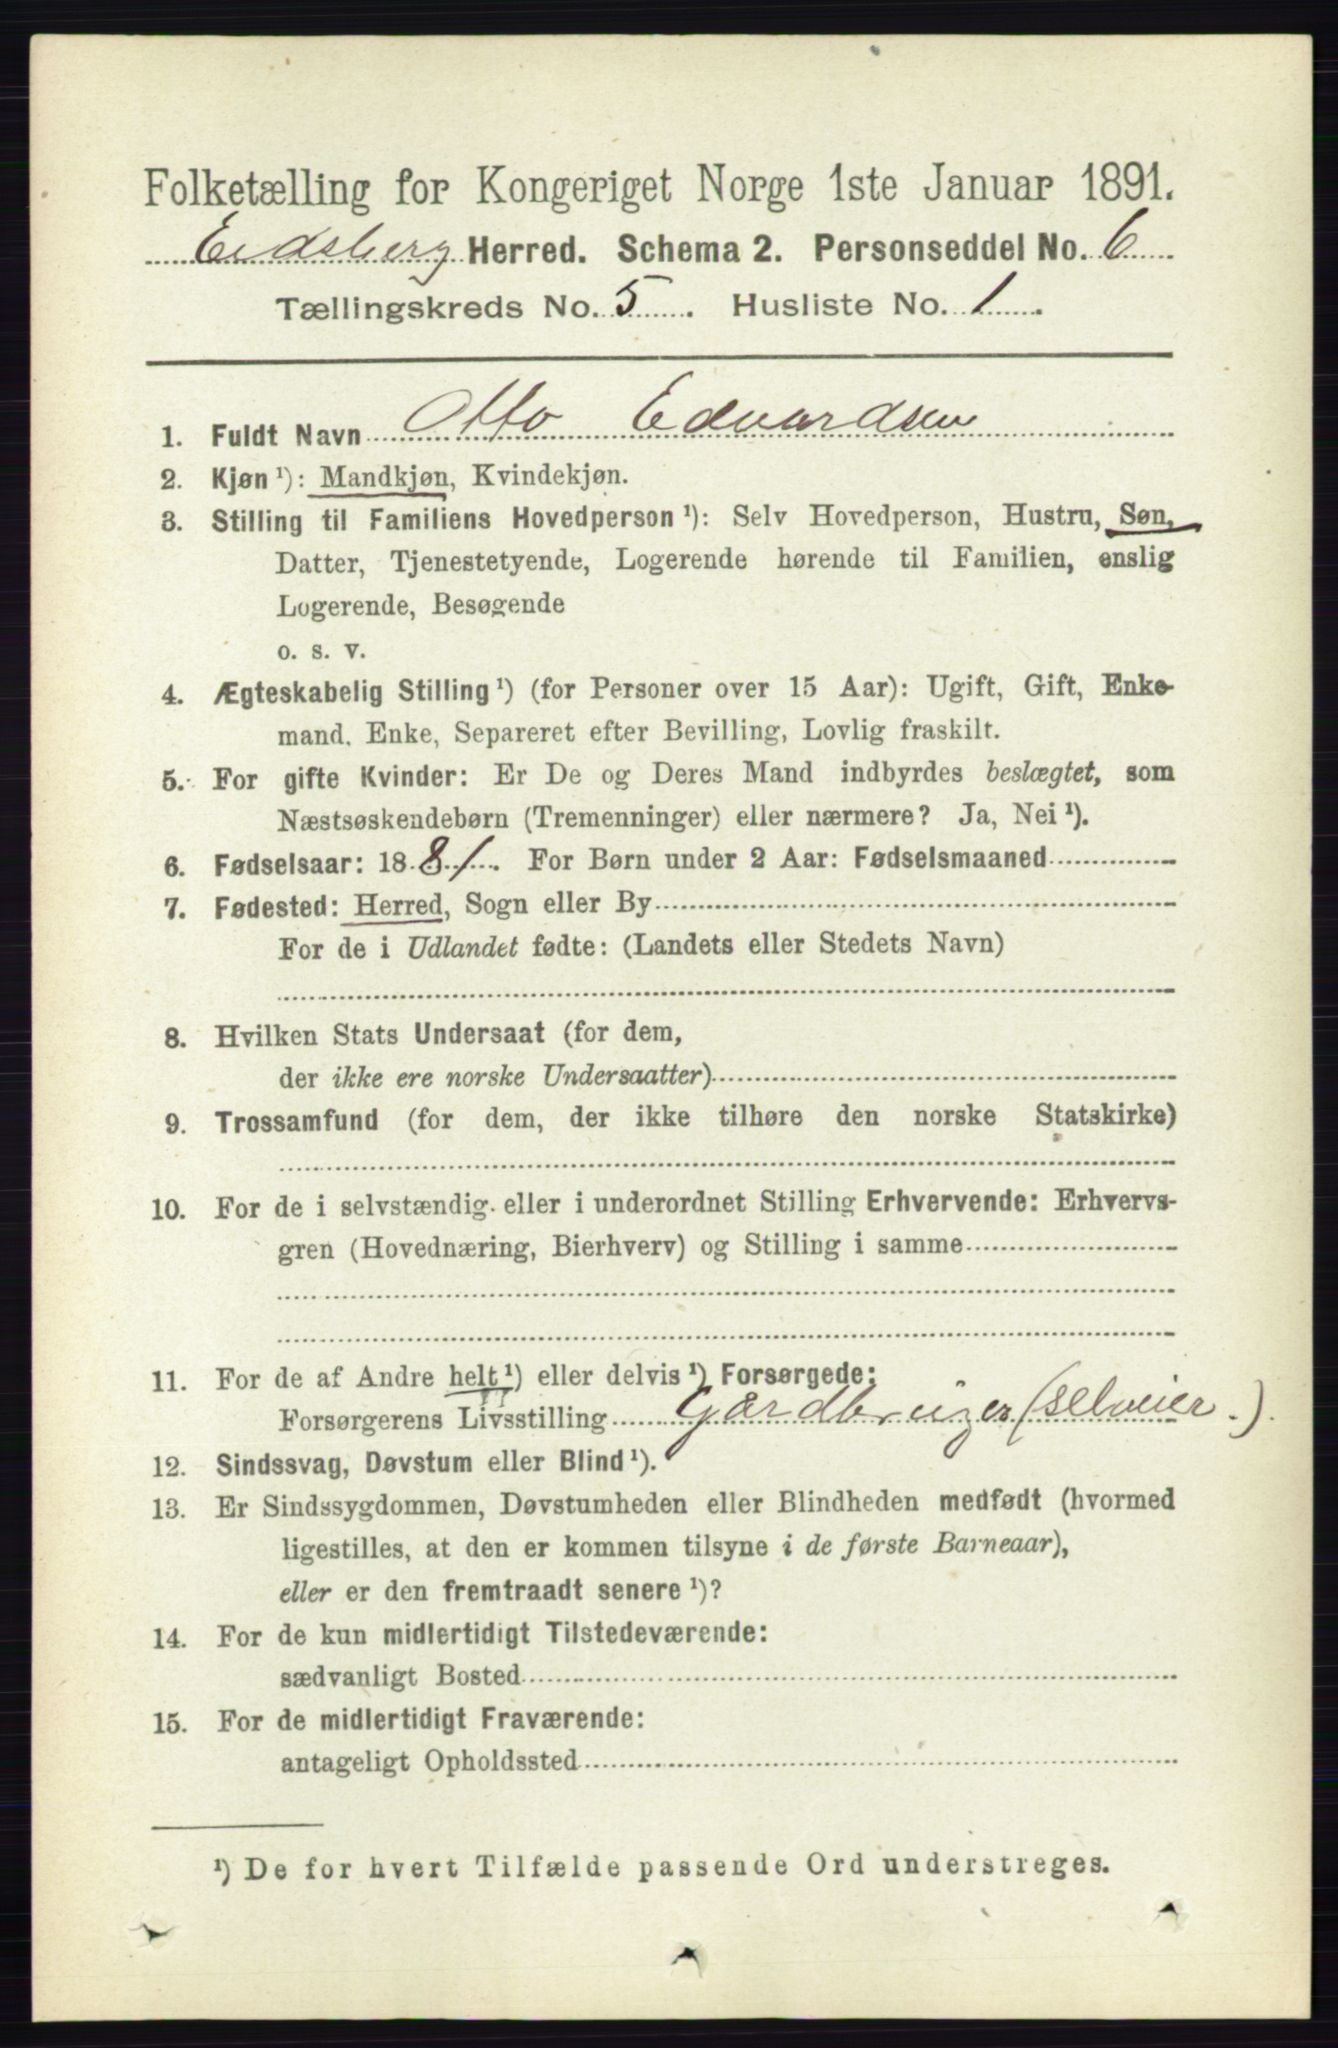 Folketælling for Kongeriget Norge 1ste Januar 1891.
Eidsberg Herred. Schema 2. Personseddel No. 6
Tællingskreds No. 5. Husliste No. 1.
1. Fuldt Navn Otto Edvardsen
2. Kjøn ¹): Mandkjøn, Kvindekjøn.
3. Stilling til Familiens Hovedperson ¹): Selv Hovedperson, Hustru, Søn,
Datter, Tjenestetyende, Logerende hørende til Familien, enslig
Logerende, Besøgende
o. s. v.
4. Ægteskabelig Stilling ¹) (for Personer over 15 Aar): Ugift, Gift, Enke-
mand, Enke, Separeret efter Bevilling, Lovlig fraskilt.
5. For gifte Kvinder: Er De og Deres Mand indbyrdes beslægtet, som
Næstsøskendebørn (Tremenninger) eller nærmere? Ja, Nei ¹).
6. Fødselsaar: 1881. For Børn under 2 Aar: Fødselsmaaned
7. Fødested: Herred, Sogn eller By
For de i Udlandet fødte: (Landets eller Stedets Navn)
8. Hvilken Stats Undersaat (for dem,
der ikke ere norske Undersaatter)
9. Trossamfund (for dem, der ikke tilhøre den norske Statskirke)
10. For de i selvstændig eller i underordnet Stilling Erhvervende: Erhvervs-
gren (Hovednæring, Bierhverv) og Stilling i samme
11. For de af Andre helt ¹) eller delvis ¹) Forsørgede:
Forsørgerens Livsstilling Gårdbruger (selveier.)
12. Sindssvag, Døvstum eller Blind ¹).
13. Er Sindssygdommen, Døvstumheden eller Blindheden medfødt (hvormed
ligestilles, at den er kommen tilsyne i de første Barneaar),
eller er den fremtraadt senere ¹)?
14. For de kun midlertidigt Tilstedeværende:
sædvanligt Bosted
15. For de midlertidigt Fraværende:
antageligt Opholdssted
¹) De for hvert Tilfælde passende Ord understreges.